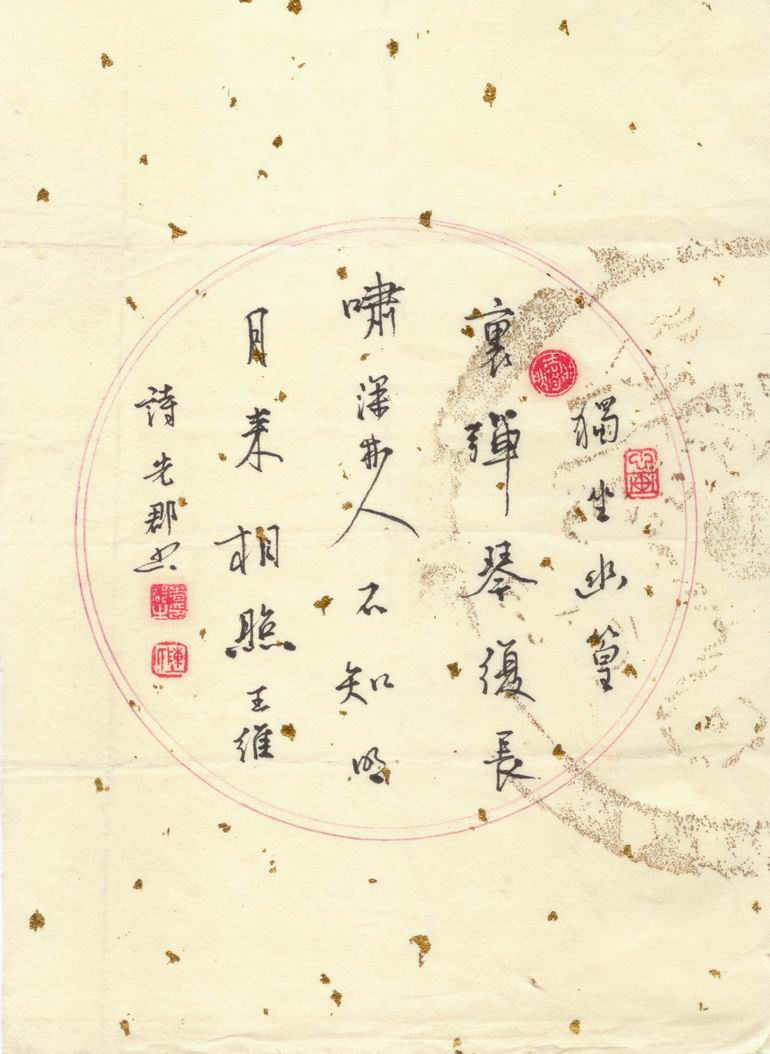 獨坐幽篁
裏彈琴復長
嘯深林人不知明
月来相照王維
詩先郡书